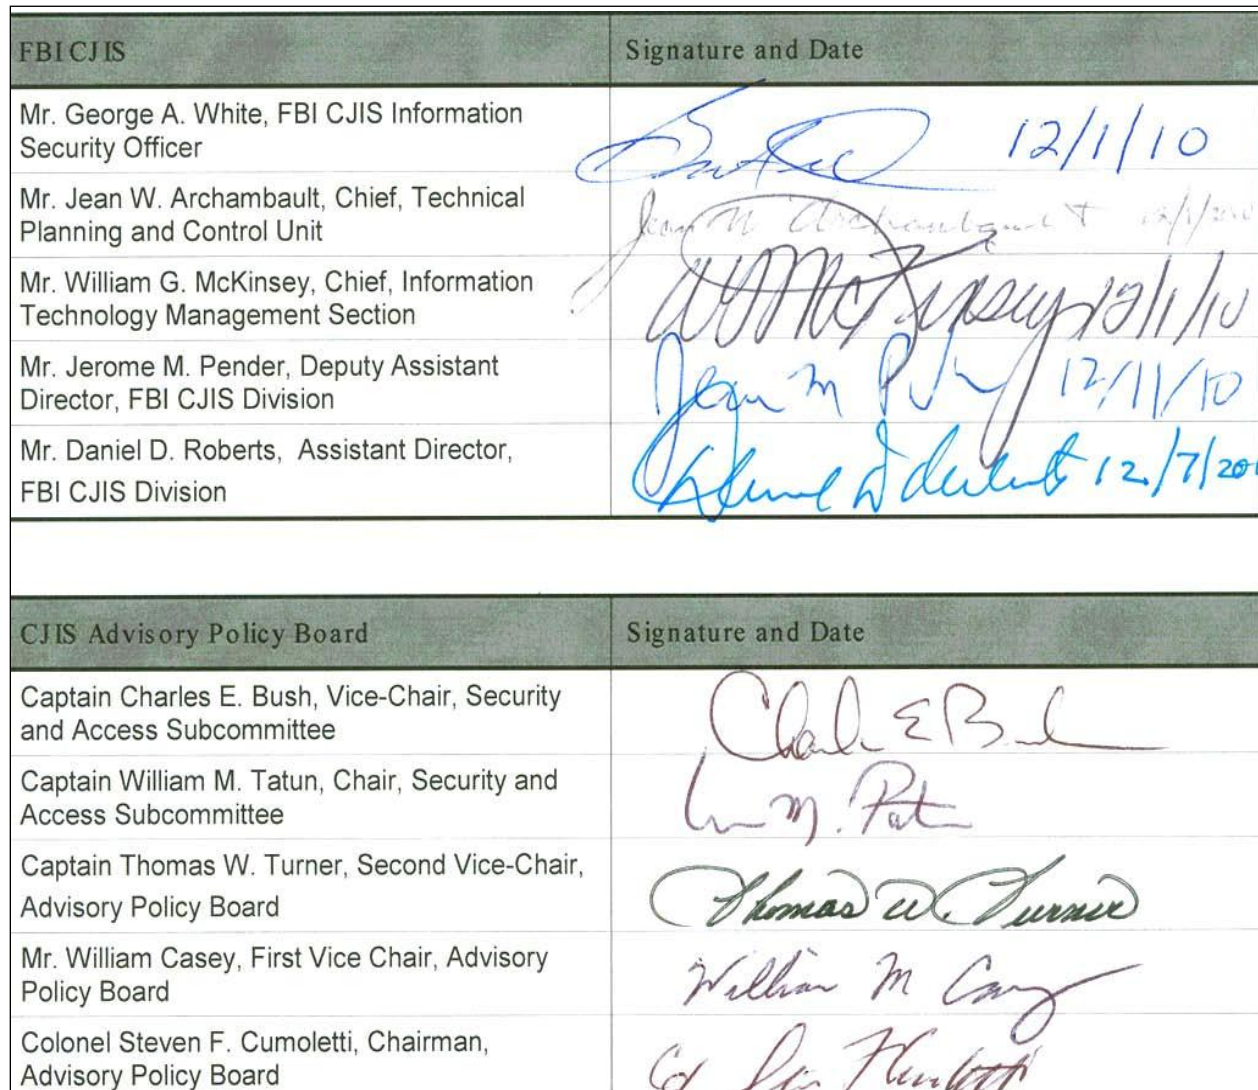 FBI CJIS Signature and Date
Mr. George A. White, FBI CJIS Information
Security Officer
12/1/10
Mr. Jean W. Archambault, Chief, Technical
Planning and Control Unit
Jean W Archambault 12/1/2010
Mr. William G. McKinsey, Chief, Information
Technology Management Section
WG McKinsey 12/1/10
Mr. Jerome M. Pender, Deputy Assistant
Director, FBI CJIS Division
12/11/10
Mr. Daniel D. Roberts, Assistant Director,
FBI CJIS Division
12/7/201
CJIS Advisory Policy Board Signature and Date
Captain Charles E. Bush, Vice-Chair, Security
and Access Subcommittee
Captain William M. Tatun, Chair, Security and
Access Subcommittee
Captain Thomas W. Turner, Second Vice-Chair,
Advisory Policy Board
Thomas W. Turner
Mr. William Casey, First Vice Chair, Advisory
Policy Board
William M Casey
Colonel Steven F. Cumoletti, Chairman,
Advisory Policy Board